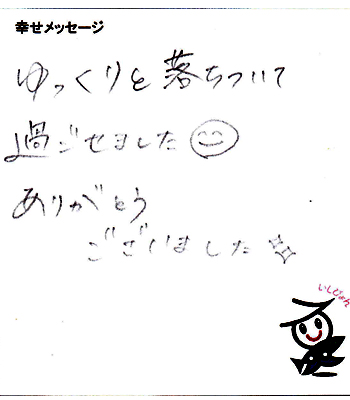 幸せメッセージ
ゆっくりと落ちついて
過ごせました
ありがとう
ございました
いしぴょん